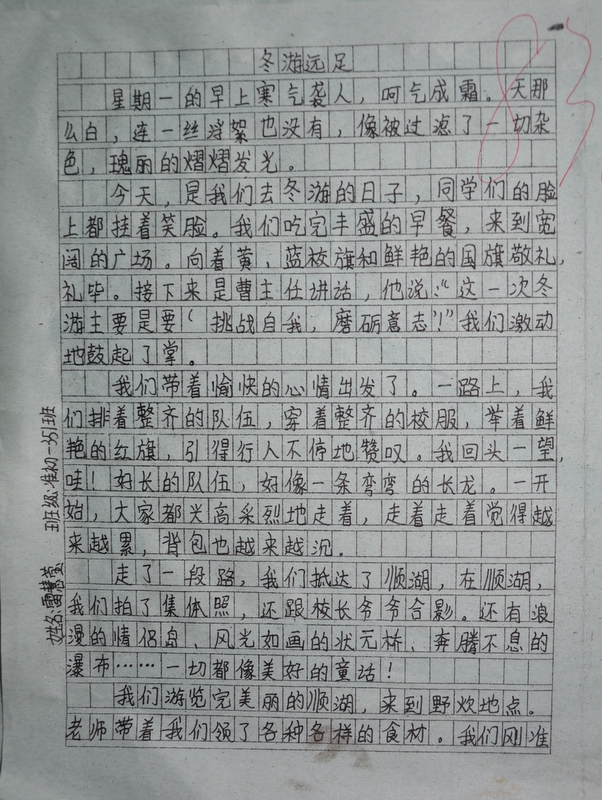 83
冬游远足
星期一的早上寒气袭人，呵气成霜。天那
么白，连一丝浮絮也没有，像被过滤了一切杂
色，瑰丽的熠熠发光。
今天，是我们去冬游的日子，同学们的脸
上都挂着笑脸。我们吃完丰盛的早餐，来到宽
阔的广场。向着黄、蓝校旗和鲜艳的国旗敬礼，
礼毕。接下来是曹主任讲话，他说："这一次冬
游主要是要（挑战自我，磨砺意志'！"我们激动
地鼓起了掌。
我们带着愉快的心情出发了。一路上，我
们排着整齐的队伍，穿着整齐的校服，举着鲜
艳的红旗，引得行人不停地赞叹。我回头一望，
哇！好长的队伍，好像一条弯弯的长龙。一开
始，大家都兴高采烈地走着，走着走着觉得越
来越累，背包也越来越沉。
走了一段路，我们抵达了顺湖，在顺湖，
我们拍了集体照，还跟校长爷爷合影。还有浪
漫的情侣岛、风光如画的状元桥、奔腾不息的
瀑布……一切都像美好的童话！
我们游览完美丽的顺湖，来到野炊地点。
老师带着我们领了各种各样的食材。我们刚准
班级：准初一351班
姓名：雷慧莹